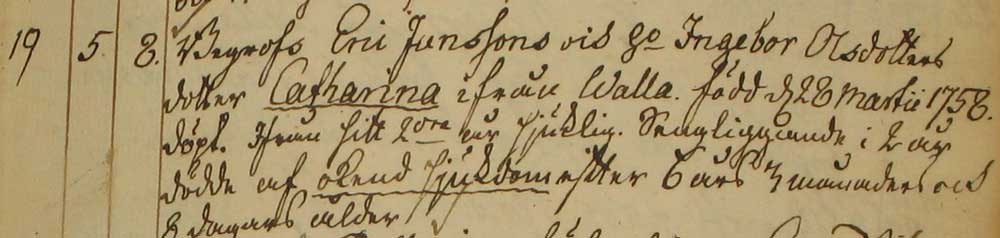 19 5 8. Begrofs Eric Janssons och Ho Ingebor Olsdotters
dotter Catharina ifrån Walla. född d 28 Martii 1758.
döpt. Ifrån sitt 2dra år sjuklig. Sängliggande i 2 år
dödde af okend sjukdom efter 6 års 3 månaders och
8 dagars ålder